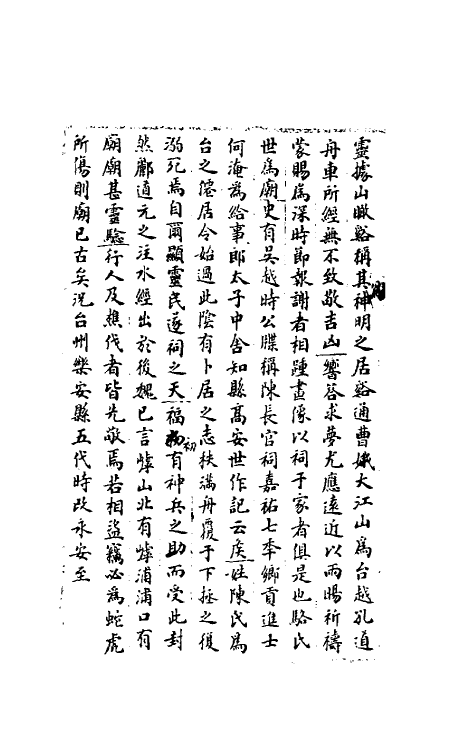 靈據山瞰谿稱其神明之居谿通曹娥大江山爲台越孔道
舟車所經無不致敬吉凶響荅求夢尤應遠近以雨暘祈禱
蒙賜爲深時節報謝者相踵畫像以祠于家者俱是也駱氏
世爲廟史有吳越時公牒稱陳長官祠嘉祐七秊鄉貢進士
何淹爲給事郎太子中舍知縣髙安世作記云侯姓陳氏爲
台之僊居令始過此陰有卜居之志秩滿舟覆于下拯之復
溺死焉自爾顯靈民遂祠之天福初有神兵之助而受此封
然酈道元之注水經出於後魏已言嶀山北有嶀浦浦口有
廟廟甚靈驗行人及樵伐者皆先敬焉若相盜竊必爲蛇虎
所傷則廟已古矣況台州樂安縣五代時改永安至